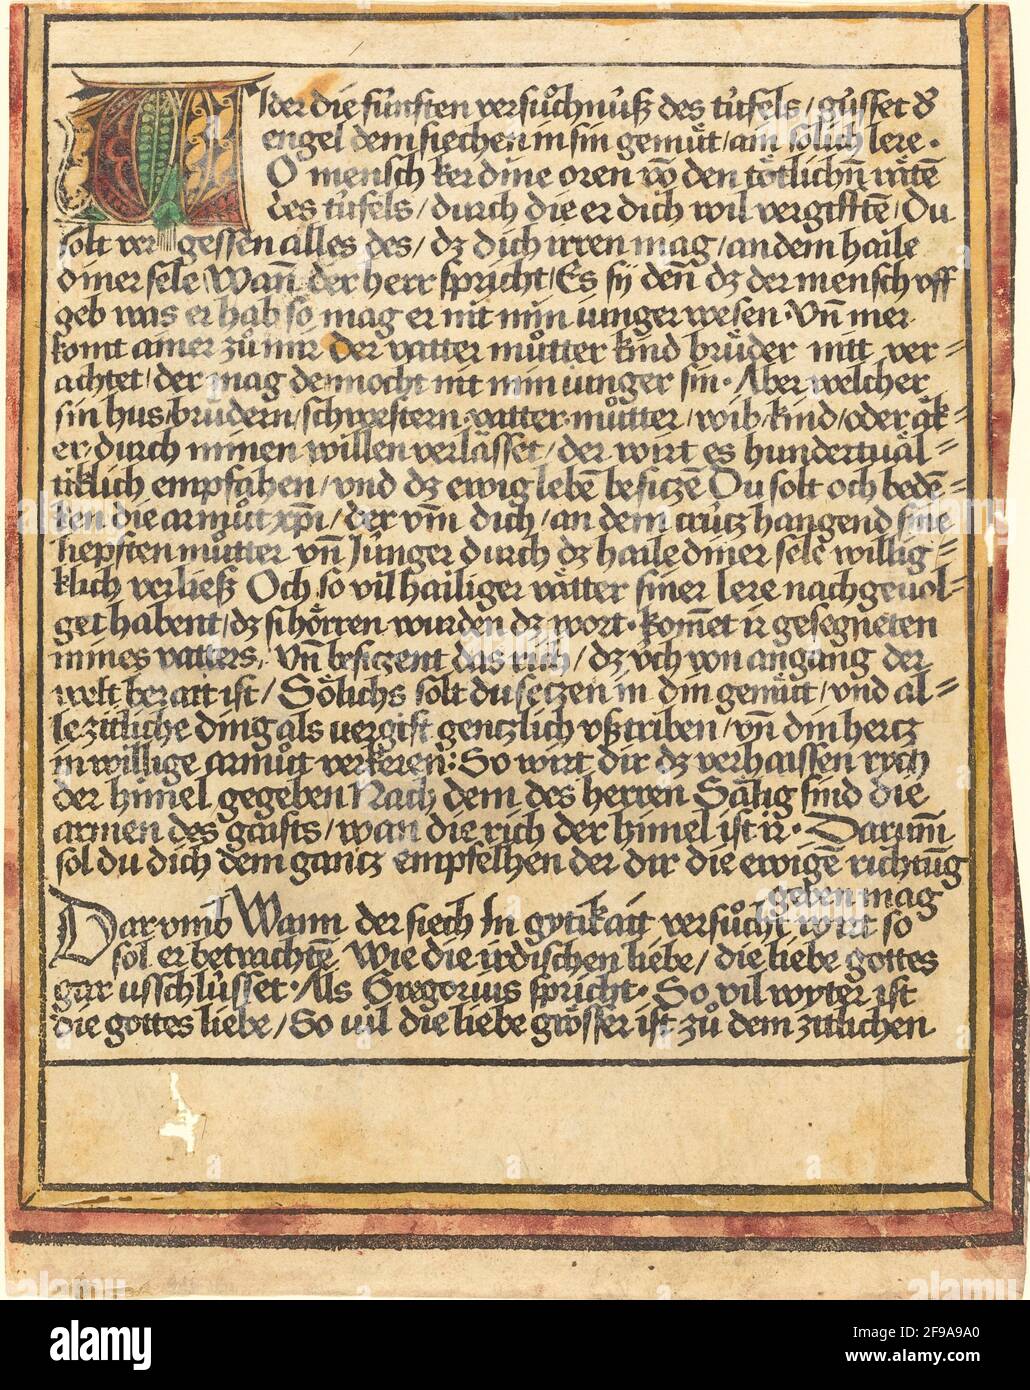 Wider die fünften versuͦchnuͤß des tuͤfels / guͤsset dʹ
engel dem siechen in sin gemuͤt / ain soͤlich lere ·
O mensch ker dine oren vō den toͤtlichn̄ raͤtē
des tuͤfels / durch die er dich wil vergifftē / Du
solt ver gessen alles des / dz dich irren mag / an dem haile
diner sele / Wan̄ der herr spricht / Es sy den̄ dz der mensch vff
geb was er hab so mag er nit min iunger wesen · Vn̄ mer
komt ainer zuͦ mir der vatter muͦtter kind bruͤder nitt ver=
achtet / der mag dennocht nit min iunger sin · Aber welcher
sin hus / brudern / schwestern · vatter · muͦtter / wib / kind / oder aͤk=
er / durch minen willen verlaͤsset / der wirt es hundertuaͤl=
tiklich empfahen / vnd dz ewig lebē besiczē Du solt och bedē=
ken die armuͦt xp̄i / der vm̄ dich / an dem cruͤtz hangend sine
liepsten muͦtter vn̄ Juͤnger durch dz haile diner sele willig=
klich verließ Och so vil hailiger vaͤtter siner lere nachgeuol=
get habent / dz si hoͤrren wurden dz wort · kom̄et ir gesegneten
mines vatters · Vn̄ besiczent das rich / dz vͤch von angang der
welt berait ist / Soͤlichs solt du seczen in din gemuͤtt / vnd al=
le zitliche ding als vergift genczlich vßtriben / vn̄ din hertz
in willige armuͦtt verkeren : So wirt dir dz verhaissen rych
der himel gegeben Nach dem des herren Saͤlig sind die
armen des gaists / wan die rich der himel ist ir · Darum̄
sol du dich dem gantz empfelhen der dir die ewigē richtūg
geben mag
Dar vmb Wann der siech In gytikait versuͦcht wirt so
sol er betrachtē Wie die irdischen liebe / die liebe gottes
gar usschluͤsset · Als Gregorius spricht · So vil wyter ist
die gottes liebe / So vil die liebe groͤsser ist zuͦ dem zitlichen
alamy
Image ID: 2F9A9A0
www.alamy.com